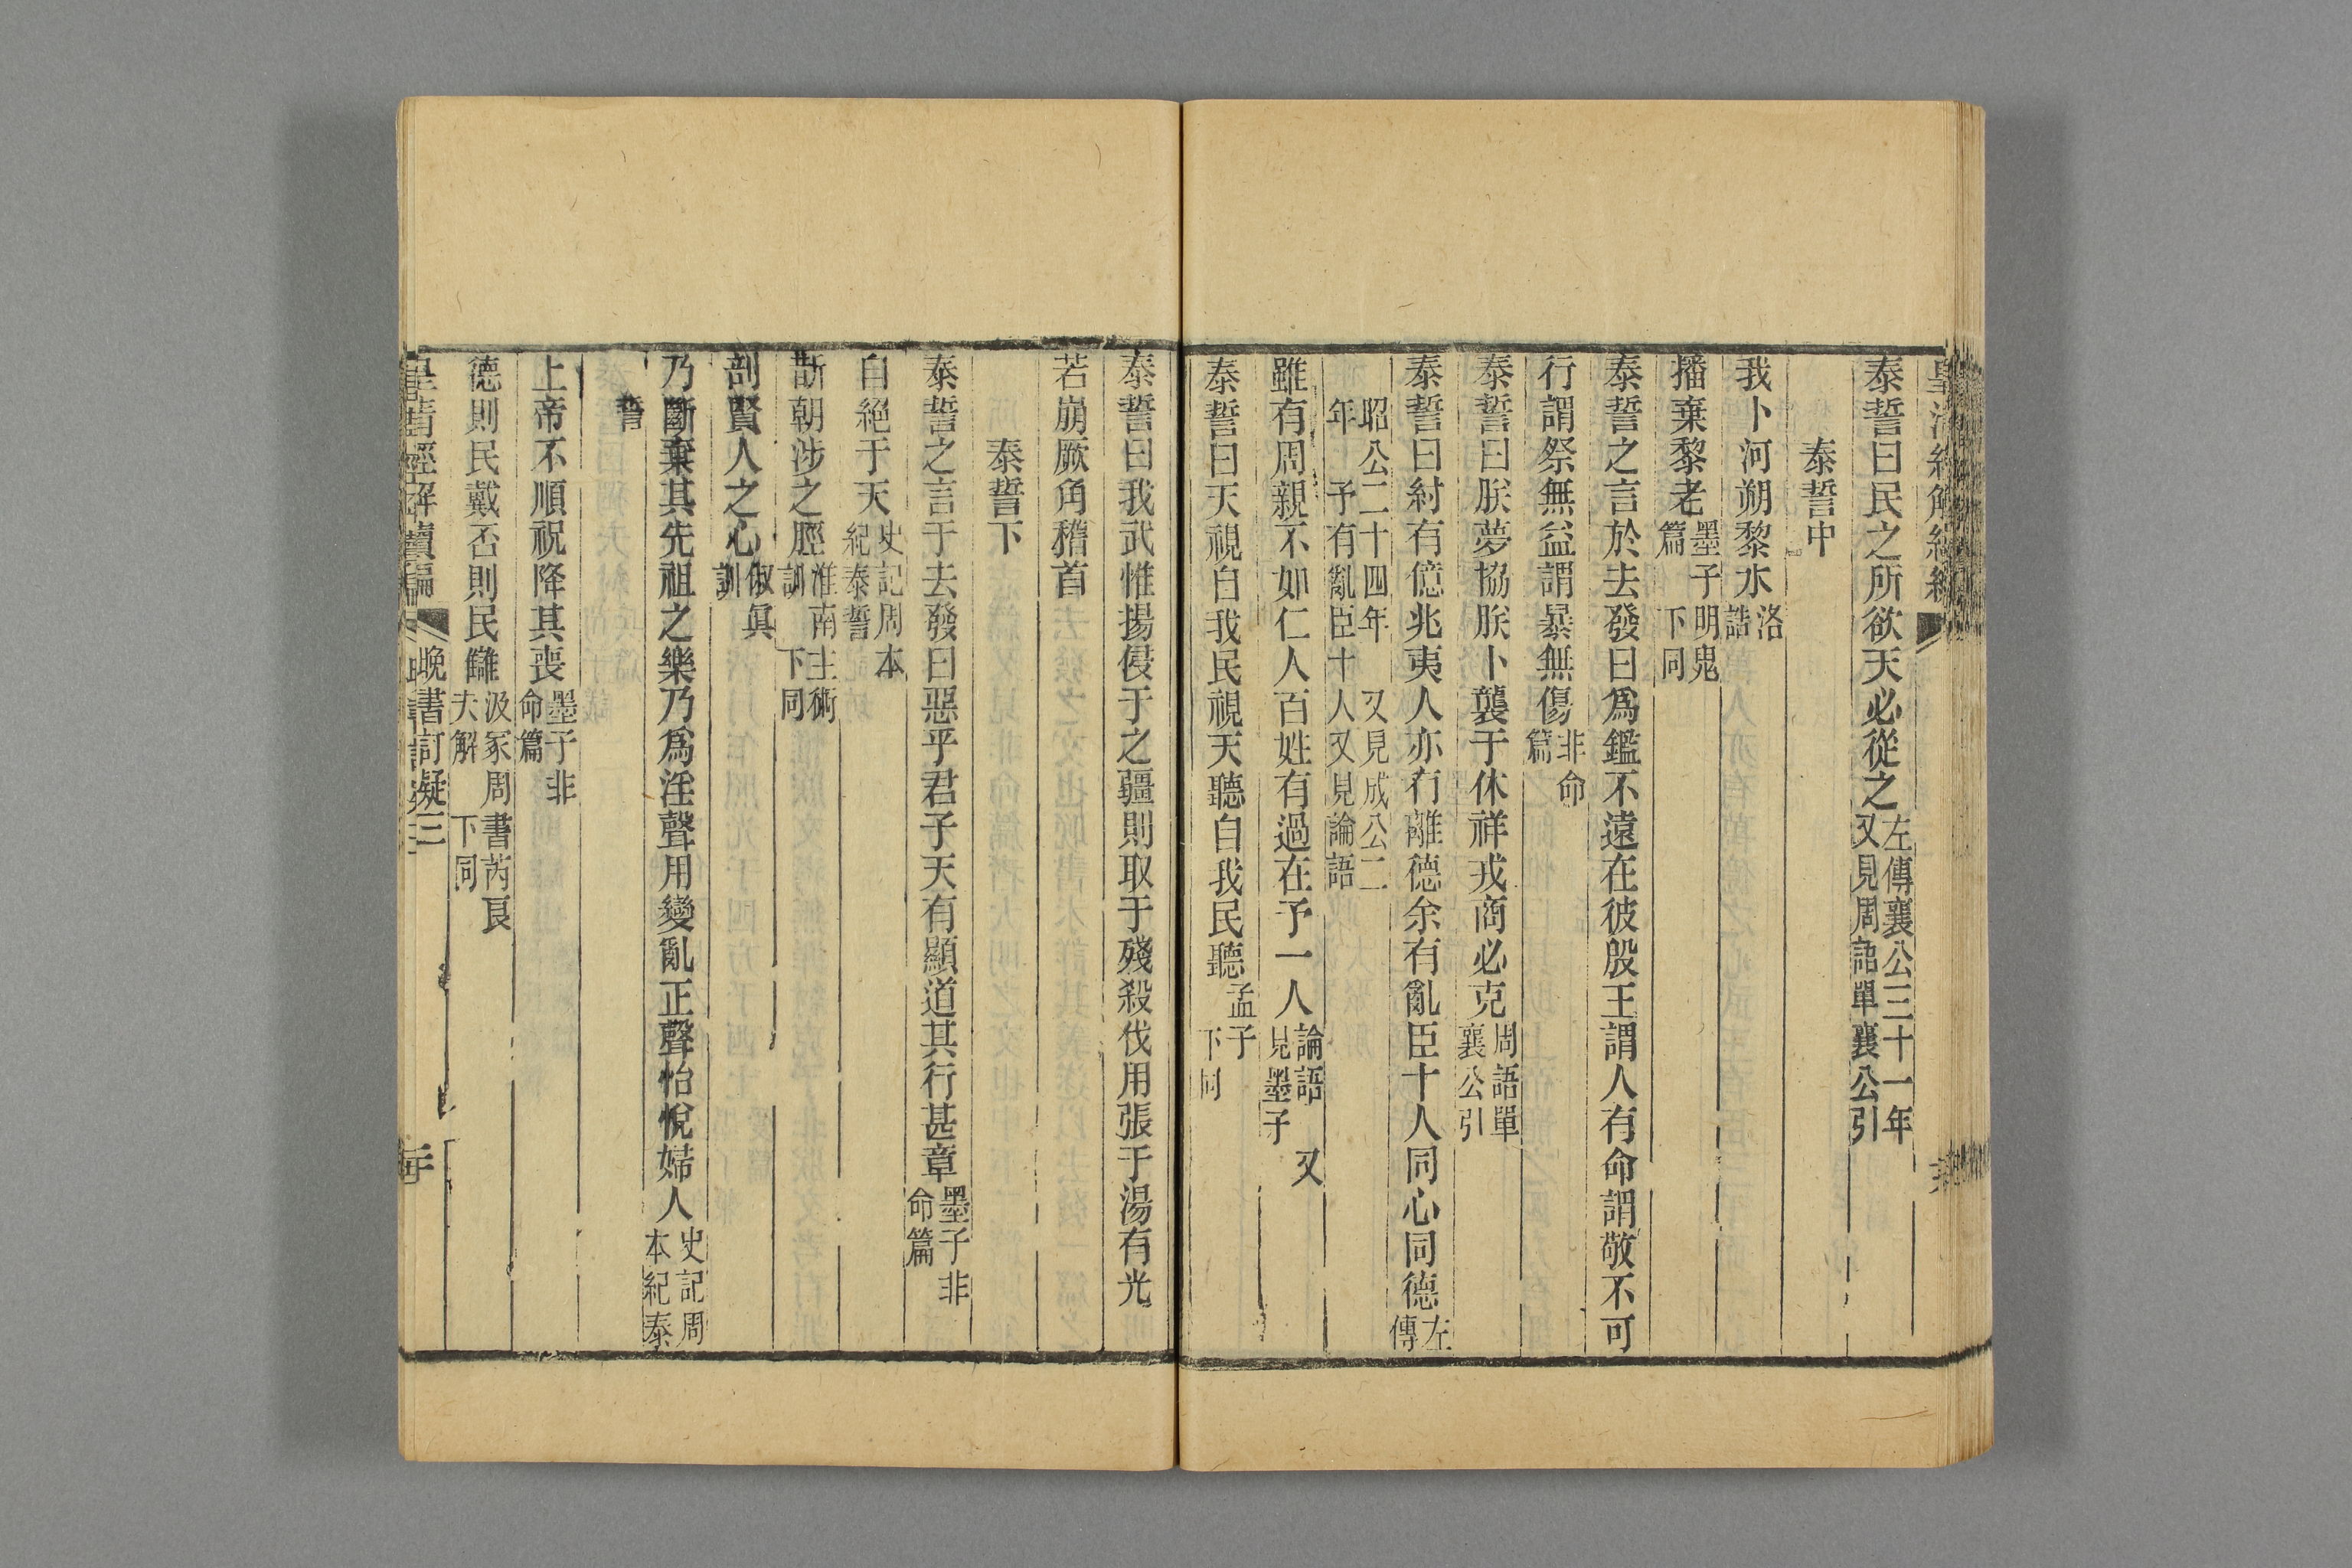 泰誓曰民之所欲天必從之左傳襄公三十一年又見周語單襄公引
泰誓中
我卜河朔黎水洛誥
播棄黎老墨子明鬼篇下同
泰誓之言於去發曰為鑑不遠在彼殷王謂人有命謂敬不可
行謂祭無益謂暴無傷非命篇
泰誓曰朕夢協朕卜襲于休祥戎商必克周語單襄公引
泰誓曰紂有億兆夷人亦有離德余有亂臣十人同心同德左傳
昭公二十四年又見成公二年予有亂臣十人又見論語
雖有周親不如仁人百姓有過在予一人論語又見墨子
泰誓曰天視自我民視天聽自我民聽孟子下同
泰誓曰我武惟揚侵于之疆則取于殘殺伐用張于湯有光
若崩厥角稽首
泰誓下
泰誓之言于去發曰惡乎君子天有顯道其行甚章墨子非命篇
自絕于天史記周本紀泰誓
斮朝涉之脛淮南主術訓下同
剖賢人之心俶真訓
乃斷棄其先祖之樂乃為淫聲用變亂正聲怡悅婦人史記周本紀泰
誓
上帝不順祝降其喪墨子非命篇
德則民戴否則民讎汲冢周書芮良夫解下同
皇清經解續編 晚書訂疑三